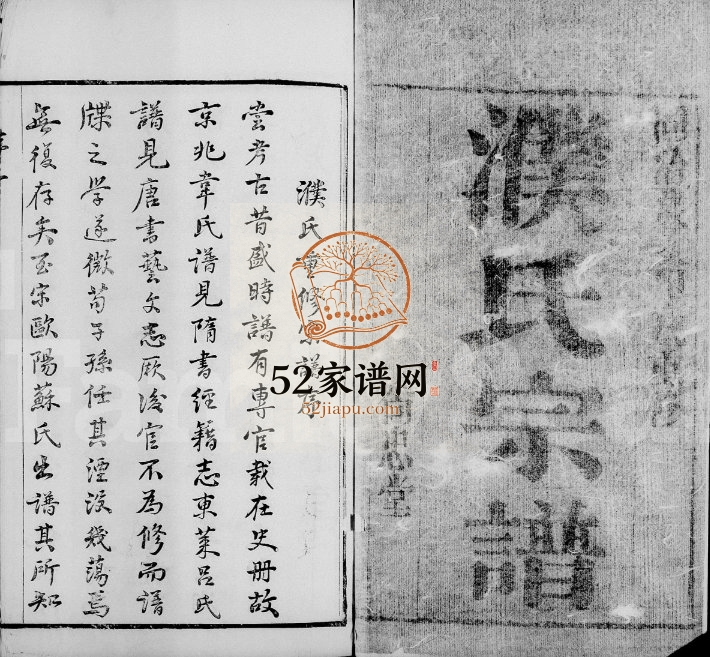 濮氏宗譜
堂
濮氏重修宗譜序
嘗考古昔盛時譜有專官載在史冊故
京兆韋氏譜見隋書經籍志東萊呂氏
譜見唐書藝文志厥後官不為修而譜
牒之學遂微苟子孫任其湮沒幾蕩焉
無復存矣至宋歐陽蘇氏出譜其所知
52家谱网
52jiapu.com